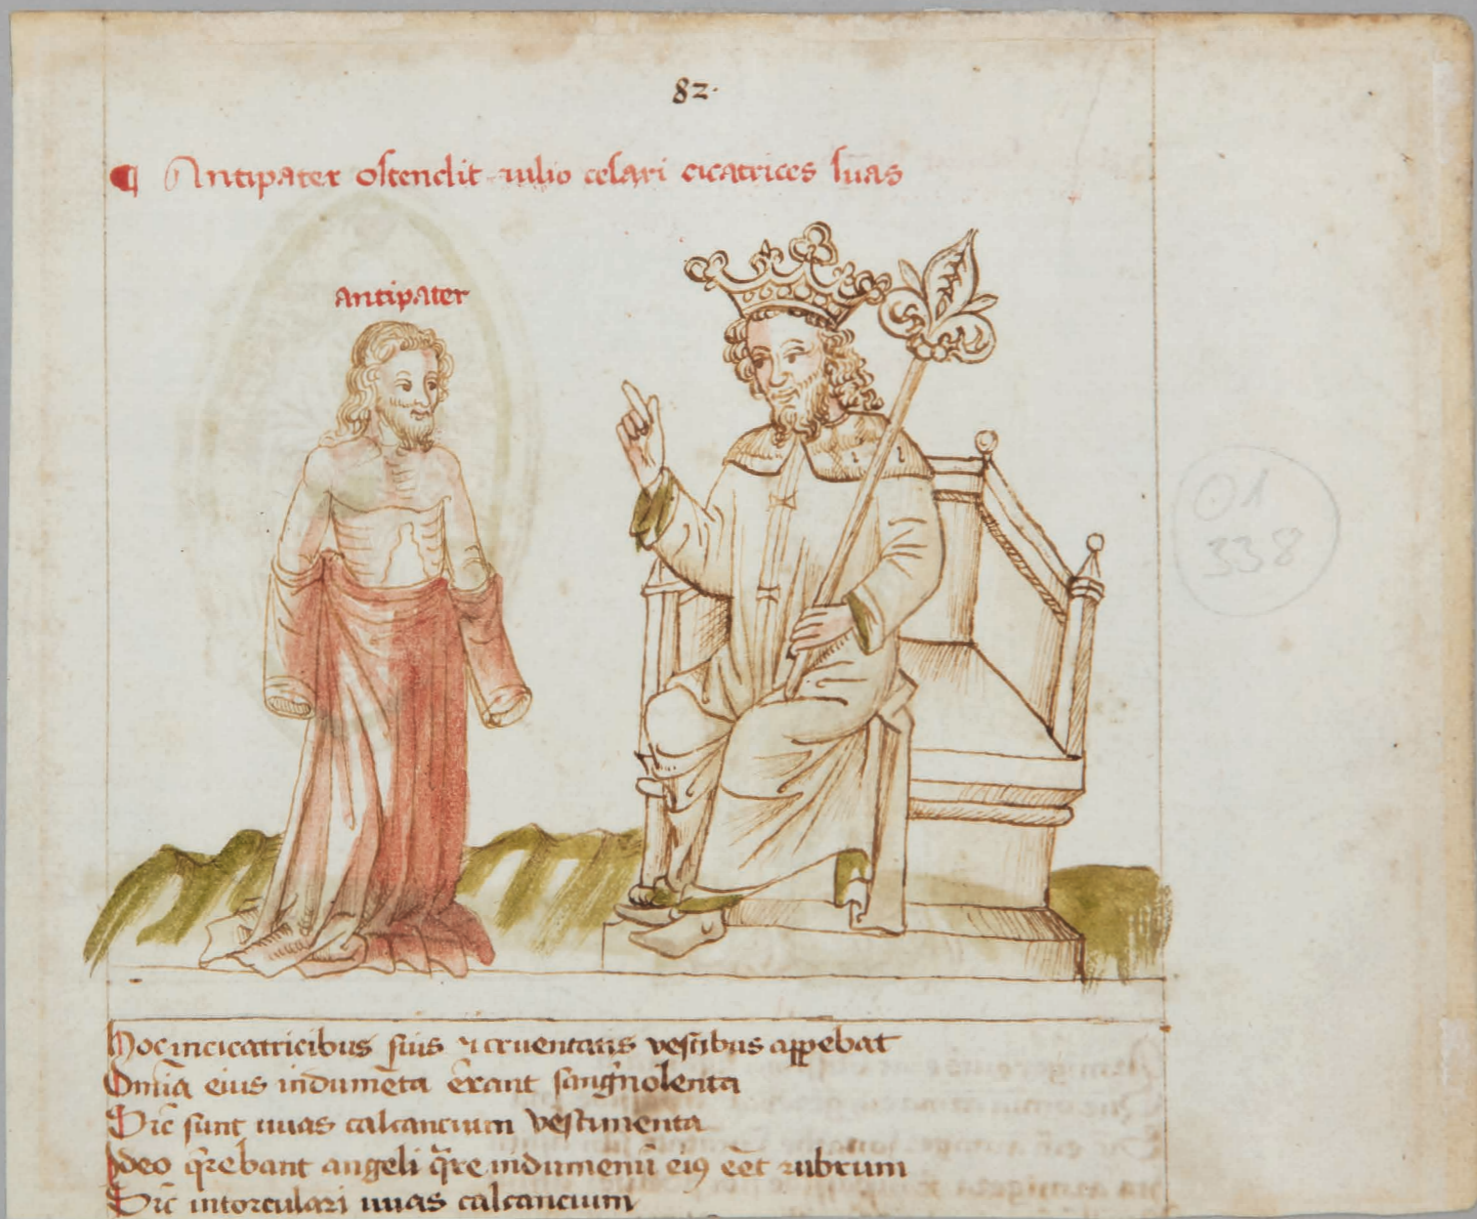 82·
¶ Antipater ostendit iulio cesari cicatrices suas
antipater
01
338
Hoc in cicatricibus suis ⁊ cruentatis vestibus apꝑebat
Om̄ia eius indumēta erant sangͥnolenta
Sic̄ sunt uuas calcancium vestimenta
Ideo q̄rebant angeli q̄re indumentū eiꝯ eēt rubrum
Sic̄ in torculari uuas calcancium